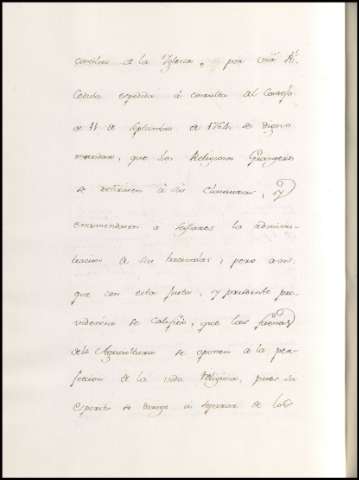 de la Iglesia, por una Rl.
Cedula expedida á consulta del Consejo
de 11 de Septiembre de 1764 se digno
mandar, que los Religiosos Grangeros
se retirasen á sus Clausuras, y
encomendasen a Seglares la adminis-
tracion de sus haciendas; pero aun-
que con esta justa, y prudente pro-
videncia se calificó, que las faenas
de la Agricultura se oponen a la per-
feccion de la vida Religiosa, pues su
Espiritu se dirige a separar de los